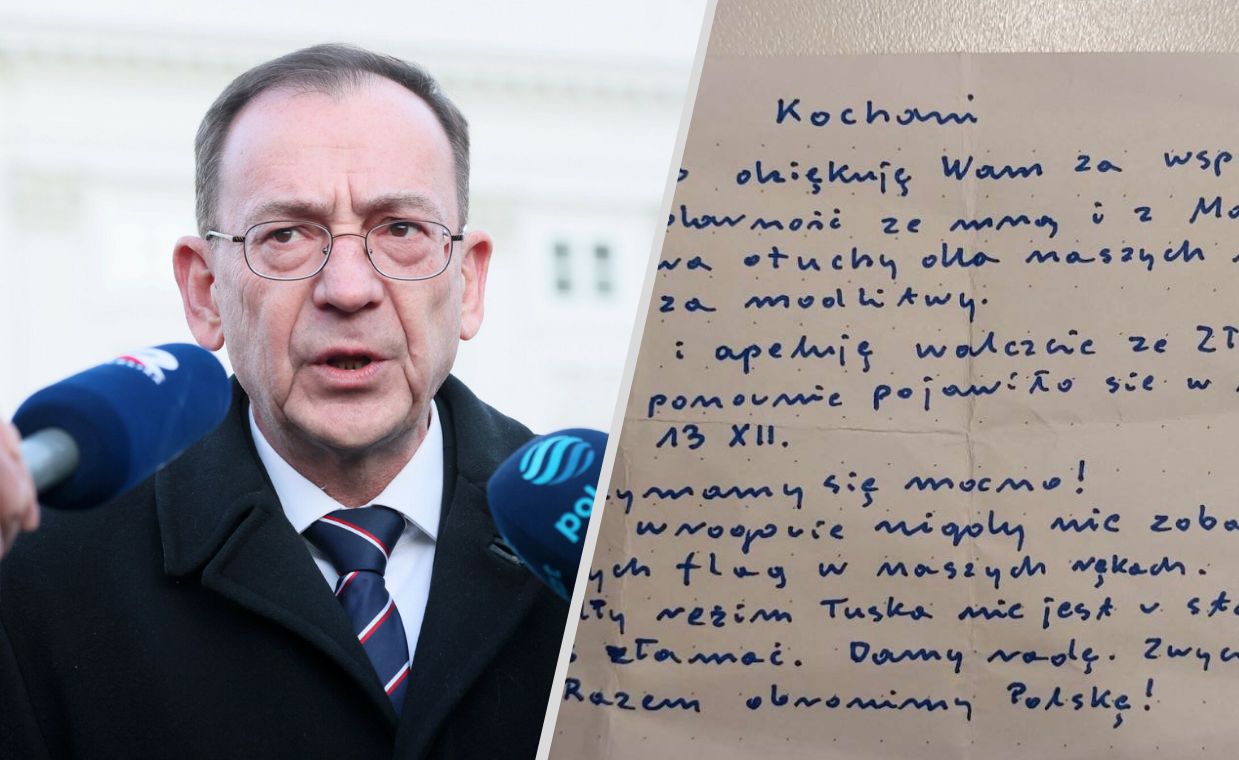 Kochani
dziękuję Wam za wsp
darność ze mną i z Ma
wa otuchy dla naszych
za modlitwy.
i apeluję walczcie ze Zł
ponownie pojawiło sie w
13 XII.
ymamy się mocno!
wrogowie nigdy nie zoba
ych flag w naszych rękach.
ały reżim Tuska nie jest w sta
złamać. Damy radę. Zwyc
Razem obronimy Polskę!
pol